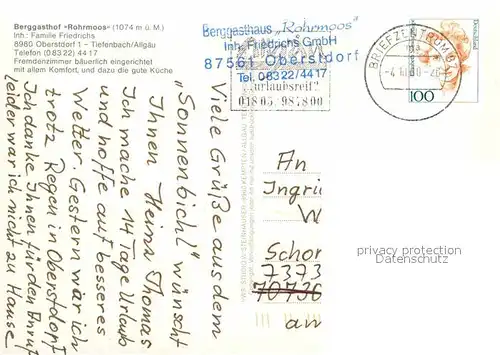 Berggasthof »Rohrmoos« (1074 m ü. M.)
Inh.: Familie Friedrichs
8960 Oberstdorf 1 – Tiefenbach/Allgäu
Telefon 0 83 22/44 17
Fremdenzimmer bäuerlich eingerichtet
mit allem Komfort, und dazu die gute Küche
Berggasthaus „Rohrmoos"
Inh. Friedrichs GmbH
87561 Oberstdorf
Tel. 08322/4417
urlaubsreif?
01805. 987800
BRIEFZENTRUM 87
100
Viele Grüße aus dem
„Sonnenbichl" wünscht
Ihnen Heinz Thomas
Ich mache 14 Tage Urlaub
und hoffe auf besseres
Wetter. Gestern war ich
trotz Regen in Oberstdorf
Ich danke Ihnen für den Anruf
leider war ich nicht zu Hause
An
Ingri
W
Schor
7373
70736
an
privacy protection
Datenschutz